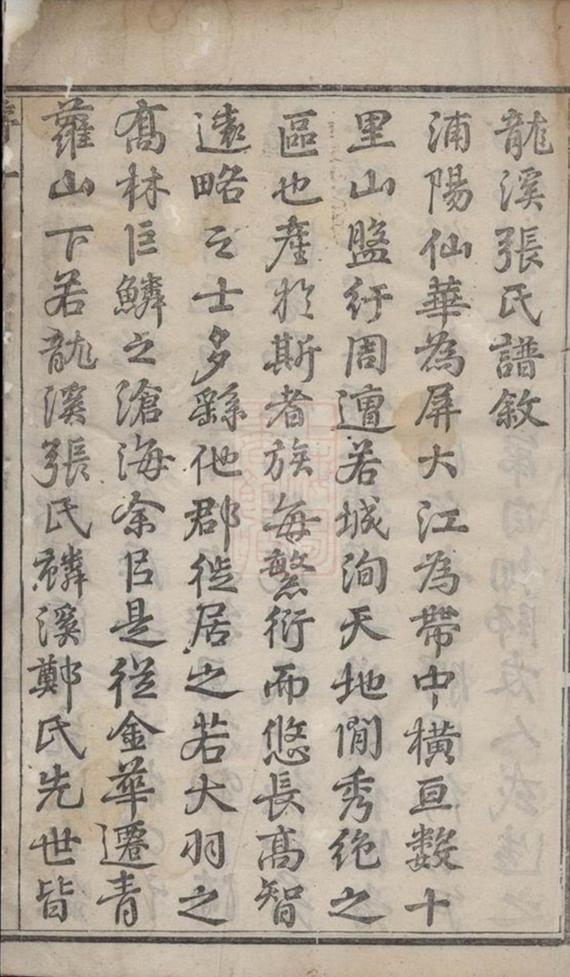 龍溪張氏譜敘
浦陽仙華為屏大江為帶中橫亘數十
里山盤紆周遭若城洵天地間秀絶之
區也產於斯者族每繁衍而悠長高智
遠略之士多繇他郡徙居之若大羽之
高林巨鱗之滄海余㠯是從金華遷青
蘿山下若龍溪張氏麟溪鄭氏先世皆